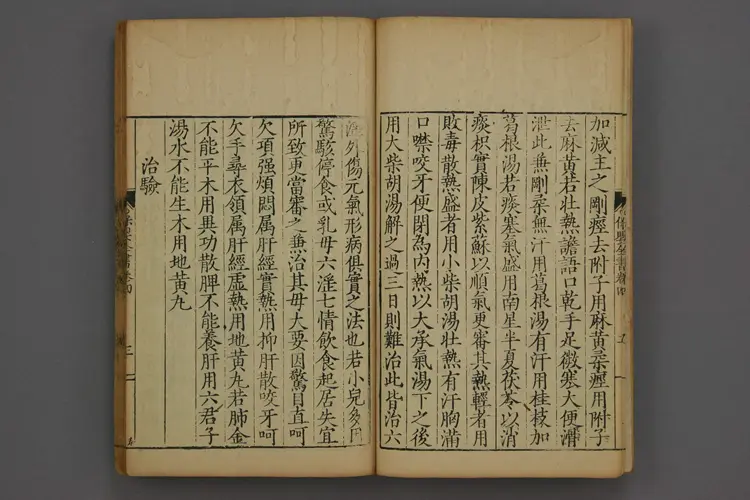 加減主之剛痙去附子用麻黃柔痙用附子
去麻黃若壯熱譫語口乾手足微寒大便滑
泄此兼剛柔無汗用葛根湯有汗用桂枝加
葛根湯若痰塞氣盛用南星半夏茯苓以消
痰枳實陳皮紫蘇以順氣更審其熱輕者用
敗毒散熱盛者用小柴胡湯壯熱有汗胸滿
口噤咬牙便閉為内熱以大承氣湯下之後
用大柴胡湯解之過三日則難治此皆治六
淫外傷元氣形病俱實之法也若小兒多因
驚駭停食或乳母六淫七情飲食起居失宜
所致更當審之兼治其母大要因驚目直呵
欠項强煩悶属肝經實熱用抑肝散咬牙呵
欠手尋衣領属肝經虛熱用地黃丸若肺金
不能平木用異功散脾不能養肝用六君子
湯水不能生木用地黃丸
治驗